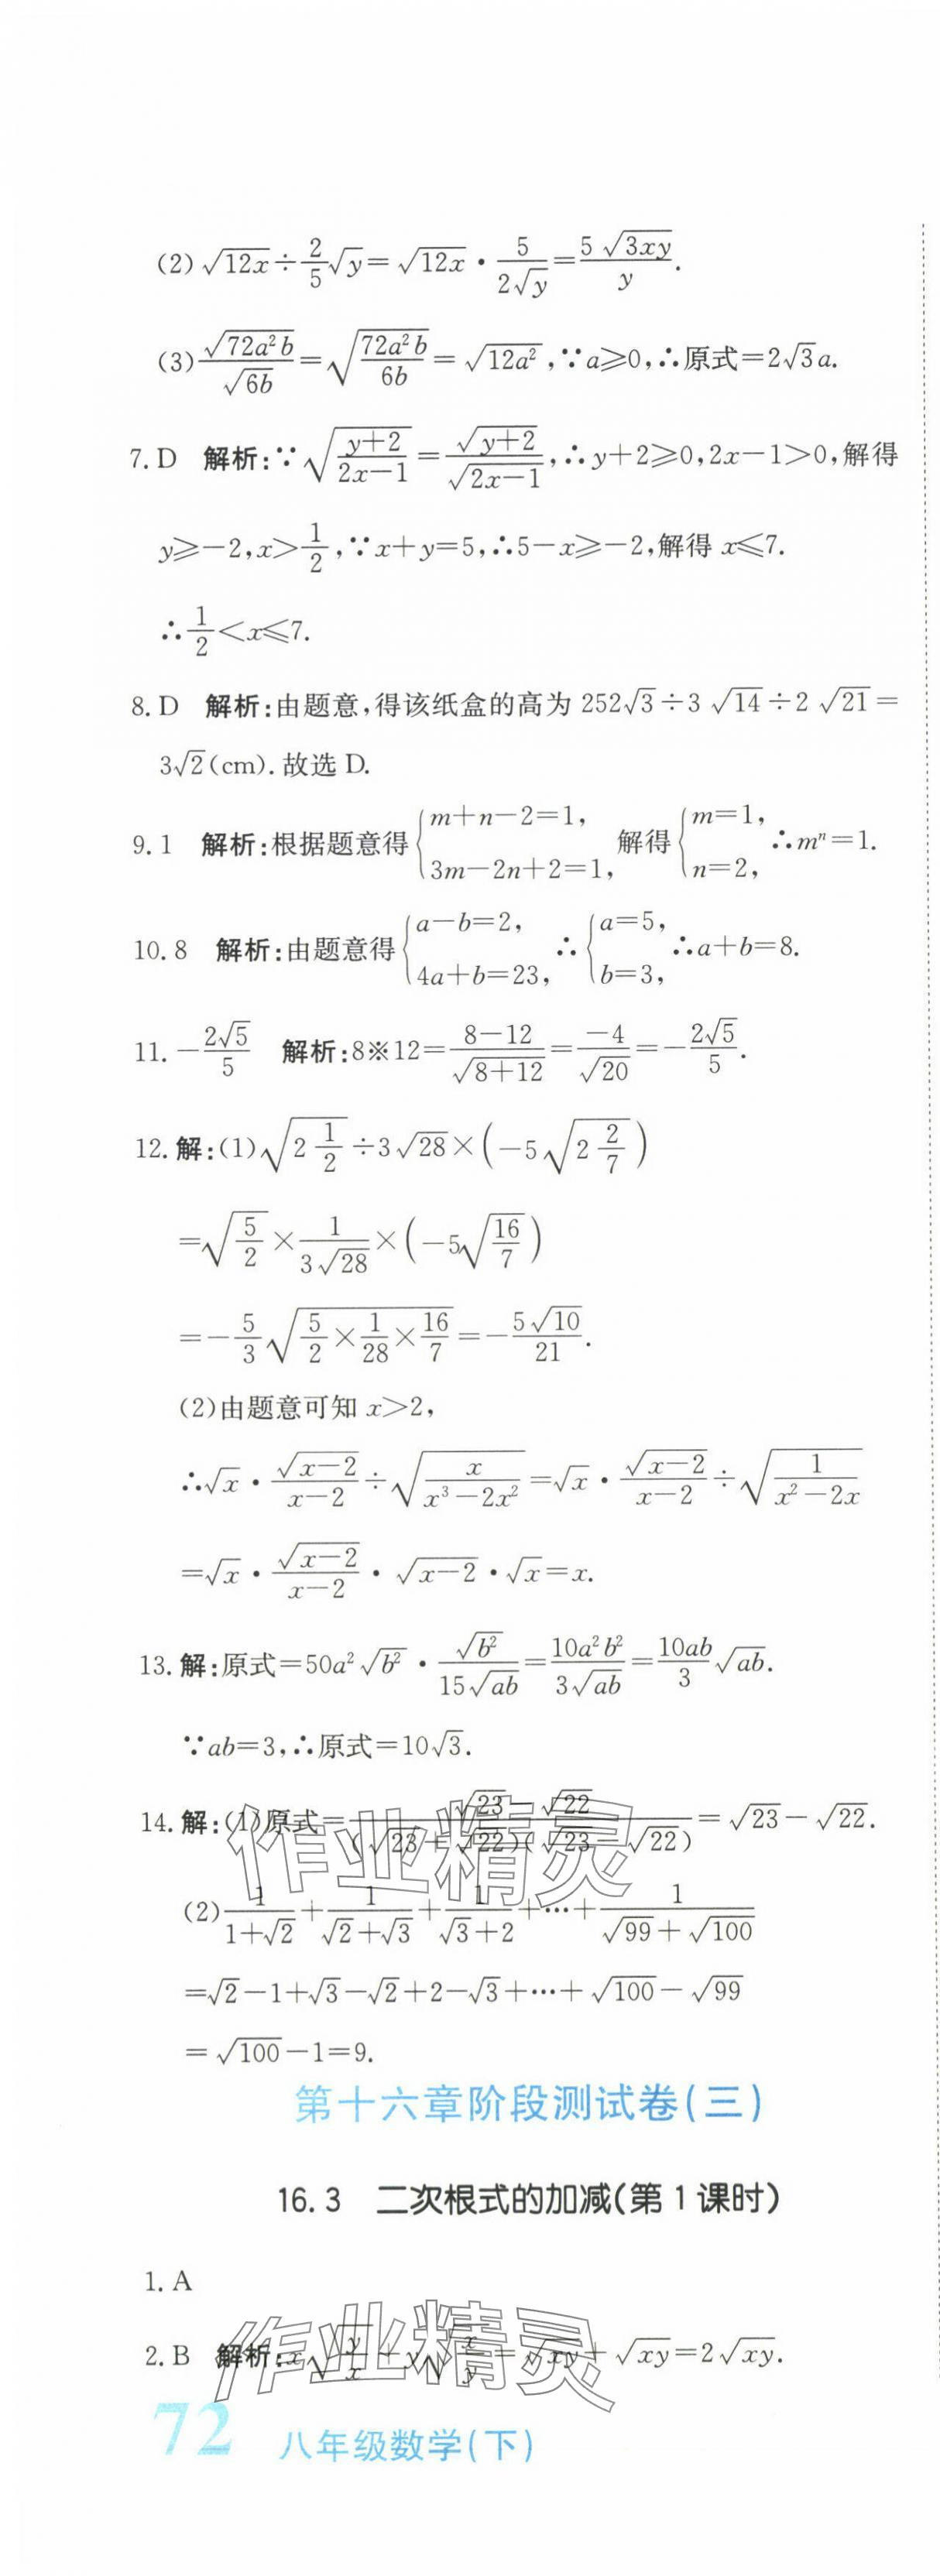 (2) √(12x) ÷ (2/5)√y = √(12x) · 5/(2√y) = 5√(3xy)/y.
(3) √(72a²b)/√(6b) = √(72a²b/6b) = √(12a²), ∵a≥0, ∴原式=2√3a.
7. D 解析:∵√((y+2)/(2x−1)) = √(y+2)/√(2x−1), ∴y+2≥0, 2x−1>0, 解得
y≥−2, x>1/2, ∵x+y=5, ∴5−x≥−2, 解得 x≤7.
∴1/2<x≤7.
8. D 解析:由题意,得该纸盒的高为 252√3÷3√14÷2√21=
3√2(cm). 故选 D.
9. 1 解析:根据题意得{m+n−2=1, 3m−2n+2=1, 解得{m=1, n=2, ∴mⁿ=1.
10. 8 解析:由题意得{a−b=2, 4a+b=23, ∴{a=5, b=3, ∴a+b=8.
11. −2√5/5 解析:8※12=(8−12)/√(8+12)=−4/√20=−2√5/5.
12. 解:(1)√(2 1/2)÷3√28×(−5√(2 2/7))
=√(5/2)×1/(3√28)×(−5√(16/7))
=−(5/3)√(5/2×1/28×16/7)=−5√10/21.
(2)由题意可知 x>2,
∴√x·√(x−2)/(x−2)÷√(x/(x³−2x²))=√x·√(x−2)/(x−2)÷√(1/(x²−2x))
=√x·√(x−2)/(x−2)·√(x−2)·√x=x.
13. 解:原式=50a²√(b²)·√(b²)/(15√(ab))=10a²b²/(3√(ab))=(10ab/3)√(ab).
∵ab=3, ∴原式=10√3.
14. 解:(1)原式=(√23−√22)/((√23+√22)(√23−√22))=√23−√22.
(2)1/(1+√2)+1/(√2+√3)+1/(√3+2)+…+1/(√99+√100)
=√2−1+√3−√2+2−√3+…+√100−√99
=√100−1=9.
第十六章阶段测试卷(三)
16.3 二次根式的加减(第1课时)
1. A
2. B 解析:x√(y/x)+y√(x/y)=√(xy)+√(xy)=2√(xy).
72 八年级数学(下)
作业精灵
作业精灵